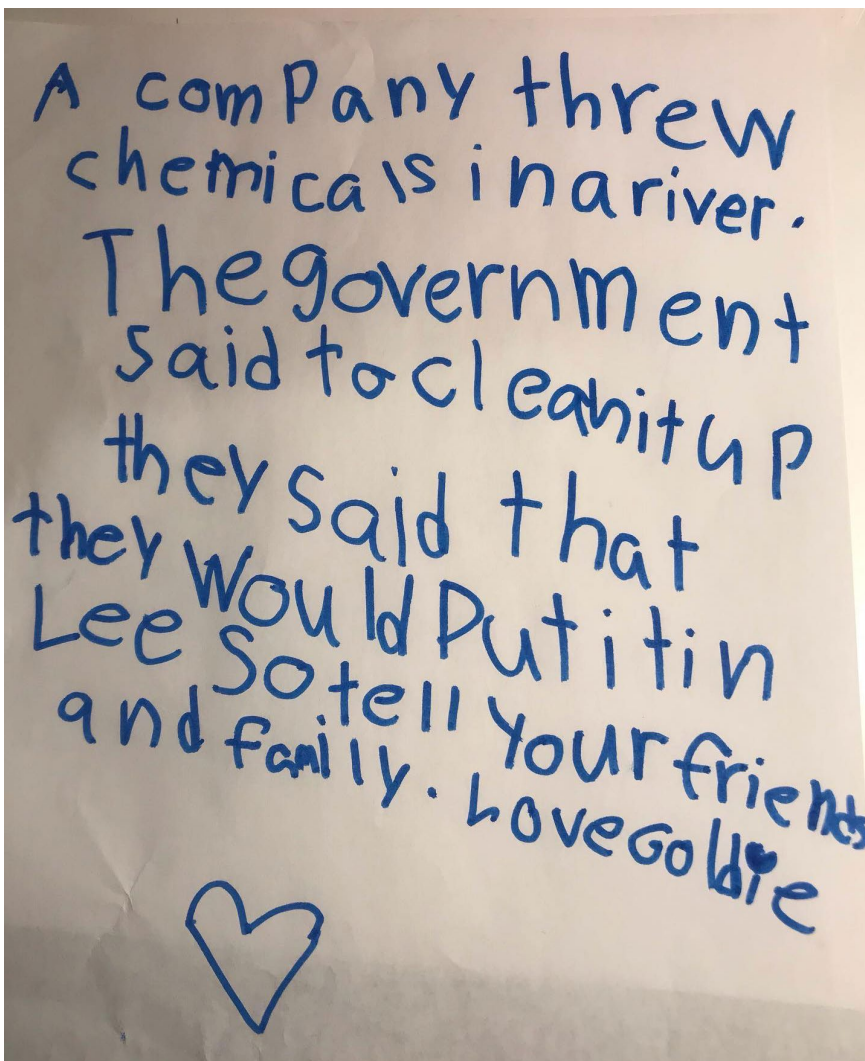 A company threw
chemicals in a river.
The government
said to clean it up
they said that
they would put it in
Lee so tell your friends
and family. Love Goldie